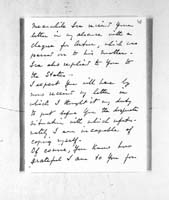 Meanwhile Ina received your
letter in my absence with a
cheque for Arthur, which was
passed on to his mother.
Ina also replied to you to
the States.
I expect you will have by
now received my letter in
which I thought it my duty
to put before you the desperate
situation with which
I am incapable of
coping myself.
Of course, you know how
grateful I am to you for